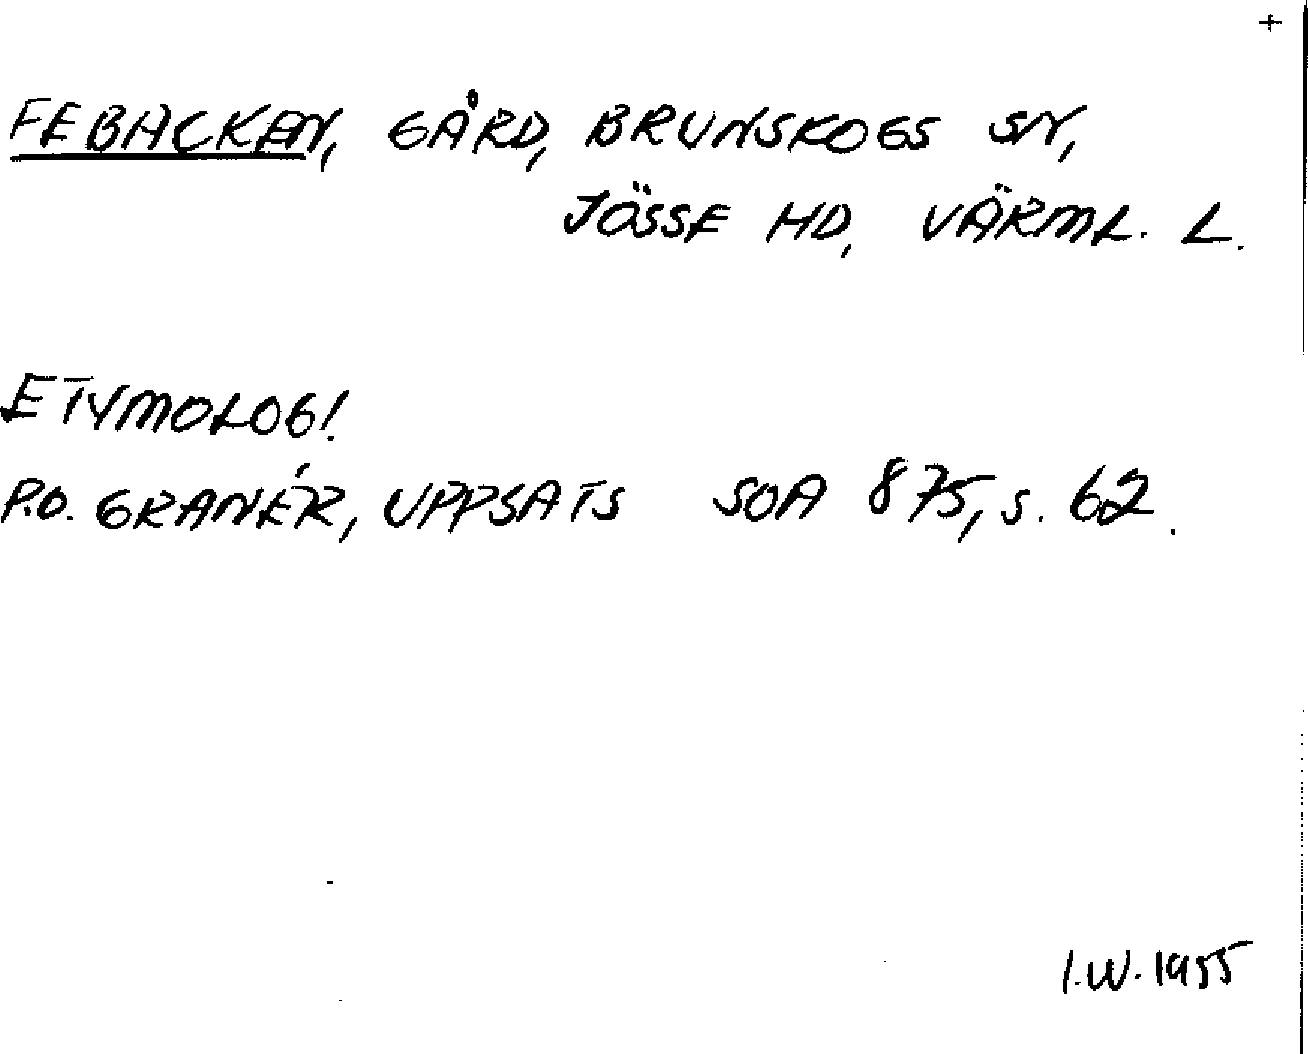 +
FEBACKEN, GÅRD, BRUNSKOGS SN,
JÖSSE HD, VÄRML. L.
ETYMOLOG!
P.O. GRANÉR, UPPSATS SOA 875, s. 62.
I.W. 1955